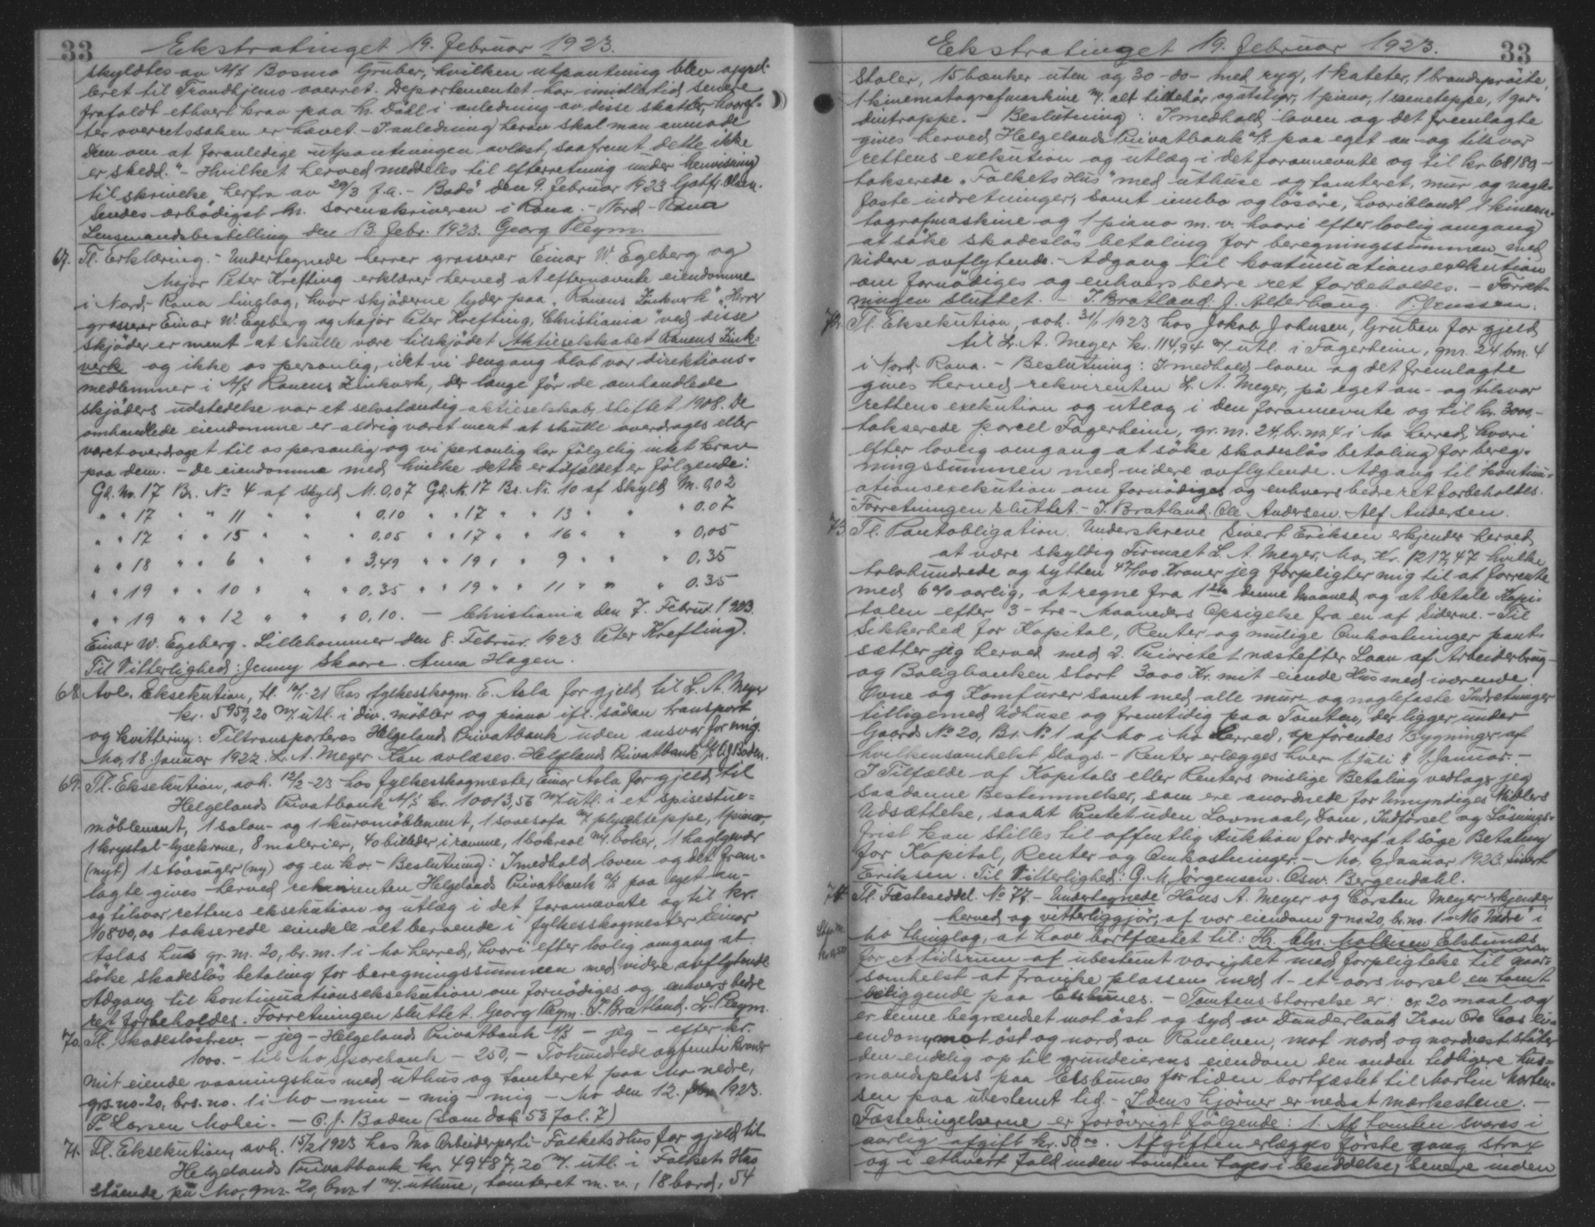 33
Ekstratinget 19. februar 1923.
skyldtes av A/S Bosmo Gruber, hvilken utpantning blev appel-
leret til Trondhjems overret. Departementet har imidlertid senere
frafaldt ethvert krav paa hr. Dall i anledning av disse skatter, hvoref-
ter overretssaken er hævet. I anledning herav skal man anmode
Dem om at foranledige utpantningen avlæst, saafremt dette ikke
er skedd." - Hvilket herved meddeles til efterretning under henvisning
til skrivelse herfra av 29/3 f.a. - Bodø den 9. februar 1923 Gotfr. Olsen.
Sendes ærbødigst hr. sorenskriveren i Rana. - Nord-Rana
Lensmandsbestilling den 13 febr. 1923. Georg Pleym.
67. Tl. Erklæring. - Undertegnede herrer grosserer Einar W. Egeberg og
Major Peter Krefting erklærer herved at efternævnte eiendomme
i Nord-Rana tinglag, hvor skjøderne lyder paa "Ranens Zinkverk" "Herrer
grosserer Einar W. Egeberg og Major Peter Krefting, Christiania" ved disse
skjøder er ment at skulle være tilskjødet Aktieselskabet Ranens Zink-
verk og ikke os personlig, idet vi dengang blot var direktions-
medlemmer i A/S Ranens Zinkverk, der længe før de omhandlede
skjøders udstedelse var et selvstændig aktieselskab, stiftet 1908. De
omhandlede eiendomme er aldrig været ment at skulle overdrages eller
været overdraget til os personlig og vi personlig har følgelig intet krav
paa dem. - De eiendomme med hvilke dette er tilfældet er følgende:
Gd. No. 17 Br. No 4 af skyld M. 0,07 Gd. N. 17 Br. Nr. 10 af Skyld M. 0,02
" " 17 " " 11 " " " 0,10 " " 17 " " 13 " " " 0.07
" " 17 " " 15 " " " 0,05 " " 17 " " 16 " " " 0,05
" " 18 " " 6 " " " 3,49 " " 19 " " 9 " " " 0,35
" " 19 " " 10 " " " 0,35 " " 19 " " 11 " " " 0.35
" " 19 " " 12 " " " 0,10. - Christiania den 7. Februar 1923.
Einar W. Egeberg. Lillehammer den 8. Februar 1923 Peter Krefting.
Til Vitterlighed: Jenny Skaare. Anna Hagen.
68. Avl. Eksekution, tl. 19/1-21 hos fylkesskogm. E. Asla for gjeld til L. A. Meyer
kr. 5959,20 m/. utl. i div. møbler og piano ifl. sådan transport
og kvittering: Tiltransporteres Helgeland Privatbank uden ansvar for mig.
Mo, 18. Januar 1922. L. A. Meyer. Kan avlæses. Helgelands Privatbank A/S C. J. Baden.
69. Tl. Eksekution, avh. 12/2-23 hos fylkesskogmester Einar Asla for gjeld til
Helgelands Privatbank A/S kr. 10013,56 m/. utl. i et spisestue-
møblement, 1 salon- og 1 kurvmøblement, 1 sovesofa m/. plyschteppe, 1 piano,
1 krystal-lysekrone, 8 malerier, 40 billeder i ramme, 1 bokreol m/. bøker, 1 haglgevær
(nyt) 1 støvsuger (ny) og en ko. - Beslutning: I medhold loven og det frem-
lagte gives herved rekvirenten Helgelands Privatbank A/S paa eget an-
og tilsvar rettens eksekution og utlæg i det forannævnte og til kr.
10800,00 takserede eiendele alt beroende i fylkesskogmester Einar
Aslas hus gr. nr. 20, br. nr. 1 i Mo herred, hvori efter lovlig omgang at
søke skadesløs betaling for beregningssummen med videre avflytende
Adgang til kontinuationseksekution om fornødiges og enhvers bedre
ret forbeholdes. Forretningen sluttet. Georg Pleym. I. Bratland. L. Pleym.
70. Tl. Skadesløsbrev. - jeg - Helgelands Privatbank A/S - jeg - efter kr.
1000. - til Mo Sparebank - 250,- Tohundrede og femti kroner
mit eiende vaaningshus med uthus og tomteret paa Mo nedre,
grs. no. 20, brs. no. 1 i Mo - min - mig - mig - Mo den 12. febr. 1923.
P. Larsen Molei. - C. J. Baden (som dok 53 fol. 7)
71. Tl. Eksekution, avh. 15/2 1923 hos Mo Arbeiderparti - Folkets Hus for gjeld til
Helgelands Privatbank kr. 49487,20 m/. utl. i Folkets Hus
stående på Mo, gnr. 20, bnr. 1 m/. uthuse, tomteret m.v., 18 bord, 54
33
Ekstratinget 19. februar 1923.
stoler, 15 bænker uten og 30 -do- med ryg, 1 kateter, 1 brandsprøite,
1 kinematografmaskine m/. alt tilbehør og utstyr, 1 piano, 1 sceneteppe, 1 gar-
dintrappe. - Beslutning: I medhold loven og det fremlagte
gives herved Helgelands Privatbank A/S paa eget an- og tilsvar
rettens exekution og utlæg i det forannevnte og til kr 68180,-
takserede "Folkets Hus" med uthuse og tomteret, mur og nagle-
faste indretninger, samt innbo og løsøre, hvoriblandt 1 kinema-
tografmaskine og 1 piano m.v. hvori efter lovlig omgang
at søke skadesløs betaling for beregningssummen med
videre avflytende. - Adgang til kontinuationsexekution
om fornødiges og enhvers bedre ret forbeholdes. - Forret-
ningen sluttet. - I. Bratland. J. Alterhaug. P. Jenssen.
72. Tl. Eksekution, avh. 31/1 1923 hos Jakob Johnsen, Gruben for gjeld
til L. A. Meyer kr. 114,94 m/. utl. i Fagerheim, gnr. 24 bnr. 4
i Nord-Rana. - Beslutning: I medhold loven og det fremlagte
gives herved rekvirenten L. A. Meyer, på eget an- og tilsvar
rettens exekution og utlæg i den forannevnte og til kr. 3000,-
takserede parcel Fagerheim, gr. nr. 24, br. nr. 4 i Mo herred, hvori
efter lovlig omgang at søke skadesløs betaling for bereg-
ningssummen med videre avflytende. Adgang til kontinu-
ationsexekution om fornødiges og enhvers bedre ret forbeholdes.
Forretningen sluttet - I. Bratland. Ole Andersen. Alf Andersen.
73. Tl. Pantobligation. Underskrevne Sivert Eriksen erkjender herved
at være skyldig Firmaet L. A. Meyer, Mo, Kr. 1217,47 hvilke
tolvhundrede og sytten 47/100 Kroner jeg forpligter mig til at forrente
med 6% aarlig, at regne fra 1ste denne Maaned og at betale Kapi-
talen efter 3 - tre - Maaneders Opsigelse fra en af Siderne. - Til
Sikkerhed for Kapital, Renter og mulige Omkostninger pant-
sætter jeg herved med 2. Prioritet næstefter Laan af Arbeiderbrug-
og Boligbanken stort 3000 Kr. mit eiende Hus med iværende
Ovne og Komfurer samt med alle mur og naglefaste Indretninger
tilligemed Udhuse og fremtidig paa Tomten, der ligger under
Gaards No 20, Br. No 1 af Mo i Mo Herred, opførendes Bygninger af
hvilkensomhelst Slags. - Renter erlægges hver 1. Juli & 1. Januar. -
I Tilfælde af Kapitals eller Renters mislige Betaling vedtager jeg
saadanne Bestemmelser, som ere anordnede for Umyndiges Midlers
Udsættelse, saat Pantet uden Lovmaal, Dom, Indførsel og Løsnings-
frist kan stilles til offentlig Auktion for deraf at søge Betaling
for Kapital, Renter og Omkostninger. - Mo, 6 Januar 1923. Sivert
Eriksen. Til Vitterlighed: G. M. Jørgensen. Osw. Bergendahl.
74. Tl. Fæsteseddel. No 77. - Undertegnede Hans A. Meyer og Torsten Meyer erkjender
herved og vitterliggjør, af vor eiendom g. no 20, br. no. 1 Mo Nedre i
Mo thinglag, at have bortfæstet til: Hr. Chr. Mathisen Elsbunes
for et tidsrum af ubestemt varighet med forpligtelse til naar-
somhelst at fravike plassen med 1- et aars varsel en tomt
beliggende paa Elsbunes. - Tomtens størrelse er: ca 20 maal og
er denne begrændset mot øst og syd av Dunderland Iron Ore Cos ei-
endom, mot øst og nord av Ranelven, mot nord og nordvest støter
den endelig op til grundeierens eiendom den anden tidligere hus-
mandsplass paa Elsbunes for tiden bortfæstet til Martin Morten-
sen paa ubestemt tid. - Tomtens hjørner er nedsat merkestene. -
Fæstebingelserne er forøvrigt følgende: 1. Af tomten svares i
aarlig afgift kr. 50 00. Afgiften erlægges første gang strax
og i ethvert fald inden tomten tages i besiddelse, senere inden